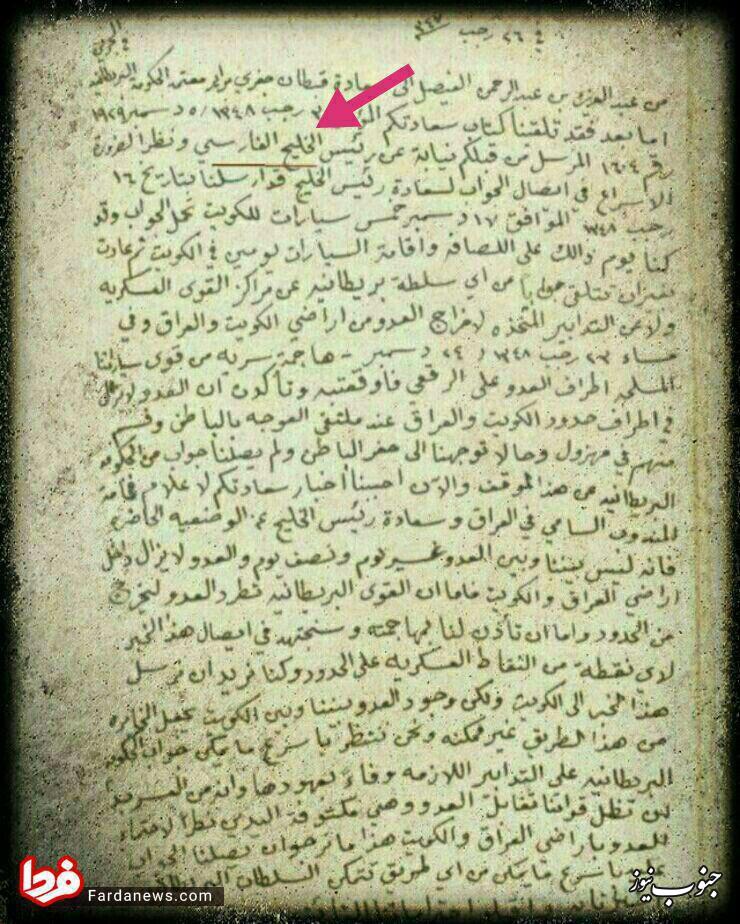 في ٢٦ رجب ١٣٤٧
من عبد العزيز بن عبد الرحمن الفيصل الى سعادة قبطان معتمد الحكومة البريطانيه
اما بعد فقد تلقينا كتاب سعادتكم رجب ١٣٤٨ / ٥ دسمبر ١٩٢٩
رقم ١٦٠٤ المرسل من قبلكم نيابة عن رئيس الخليج الفارسي ونظرا لضرورة
الاسراع في ايصال الجواب لسعادة رئيس الخليج قد ارسلنا بتاريخ ١٦
رجب ١٣٤٨ الموافق ١٧ دسمبر خمس سيارات للكويت تحمل الجواب وقد
كنا يوم ذالك على اللصافه واقامة السيارات يومين في الكويت ثم عادت
من اي سلطة بريطانيه عن مراكز القوى العسكريه
ولا عن التدابير المتخذه لاخراج العدو من اراضي الكويت والعراق وفي
مساء ٢٣ رجب ١٣٤٨ / ٢٤ دسمبر - هاجمة سريه من قوى سياراتنا
المسلحه اطراف العدو على الرقعي فاوقعت به وتأكدن ان العدو لا يزال
في اطراف حدود الكويت والعراق عند ملتقى العوجه بالباطن وقسم
منهم في مهزول وحالا توجهنا الى حفر الباطن ولم يصلنا جواب من الحكومه
البريطانيه عن هذا الموقف والان احببنا اخبار سعادتكم لاعلام فخامة
المندوب السامي في العراق وسعادة رئيس الخليج عن الوضعيه الحاضره
فانه ليس بيننا وبين العدو غير يوم ونصف يوم والعدو لا يزال داخل
اراضي العراق والكويت فاما ان القوى البريطانيه تطرد العدو ليخرج
من الحدود واما ان تأذن لنا بمهاجمته وسنجتهد في ايصال هذا الخبر
لاي نقطة من النقاط العسكريه على الحدود وكنا نريد ان نرسل
هذا الخبر الى الكويت ولكن وجود العدو بيننا وبين الكويت يجعل المخابره
من هذا الطريق غير ممكنه ونحن ننتظر باسرع ما يمكن جواب الحكومه
البريطانيه على التدابير اللازمه وفاء لعهودها وانه من
لن تظل قواتنا تقابل العدو وهي مكتوفة اليدين نظرا
العدو باراضي العراق والكويت هذا ما نرجو ان يصلنا الجواب
باسرع ما يمكن من اي طريق
فردا
Fardanews.com
جنوب نیوز